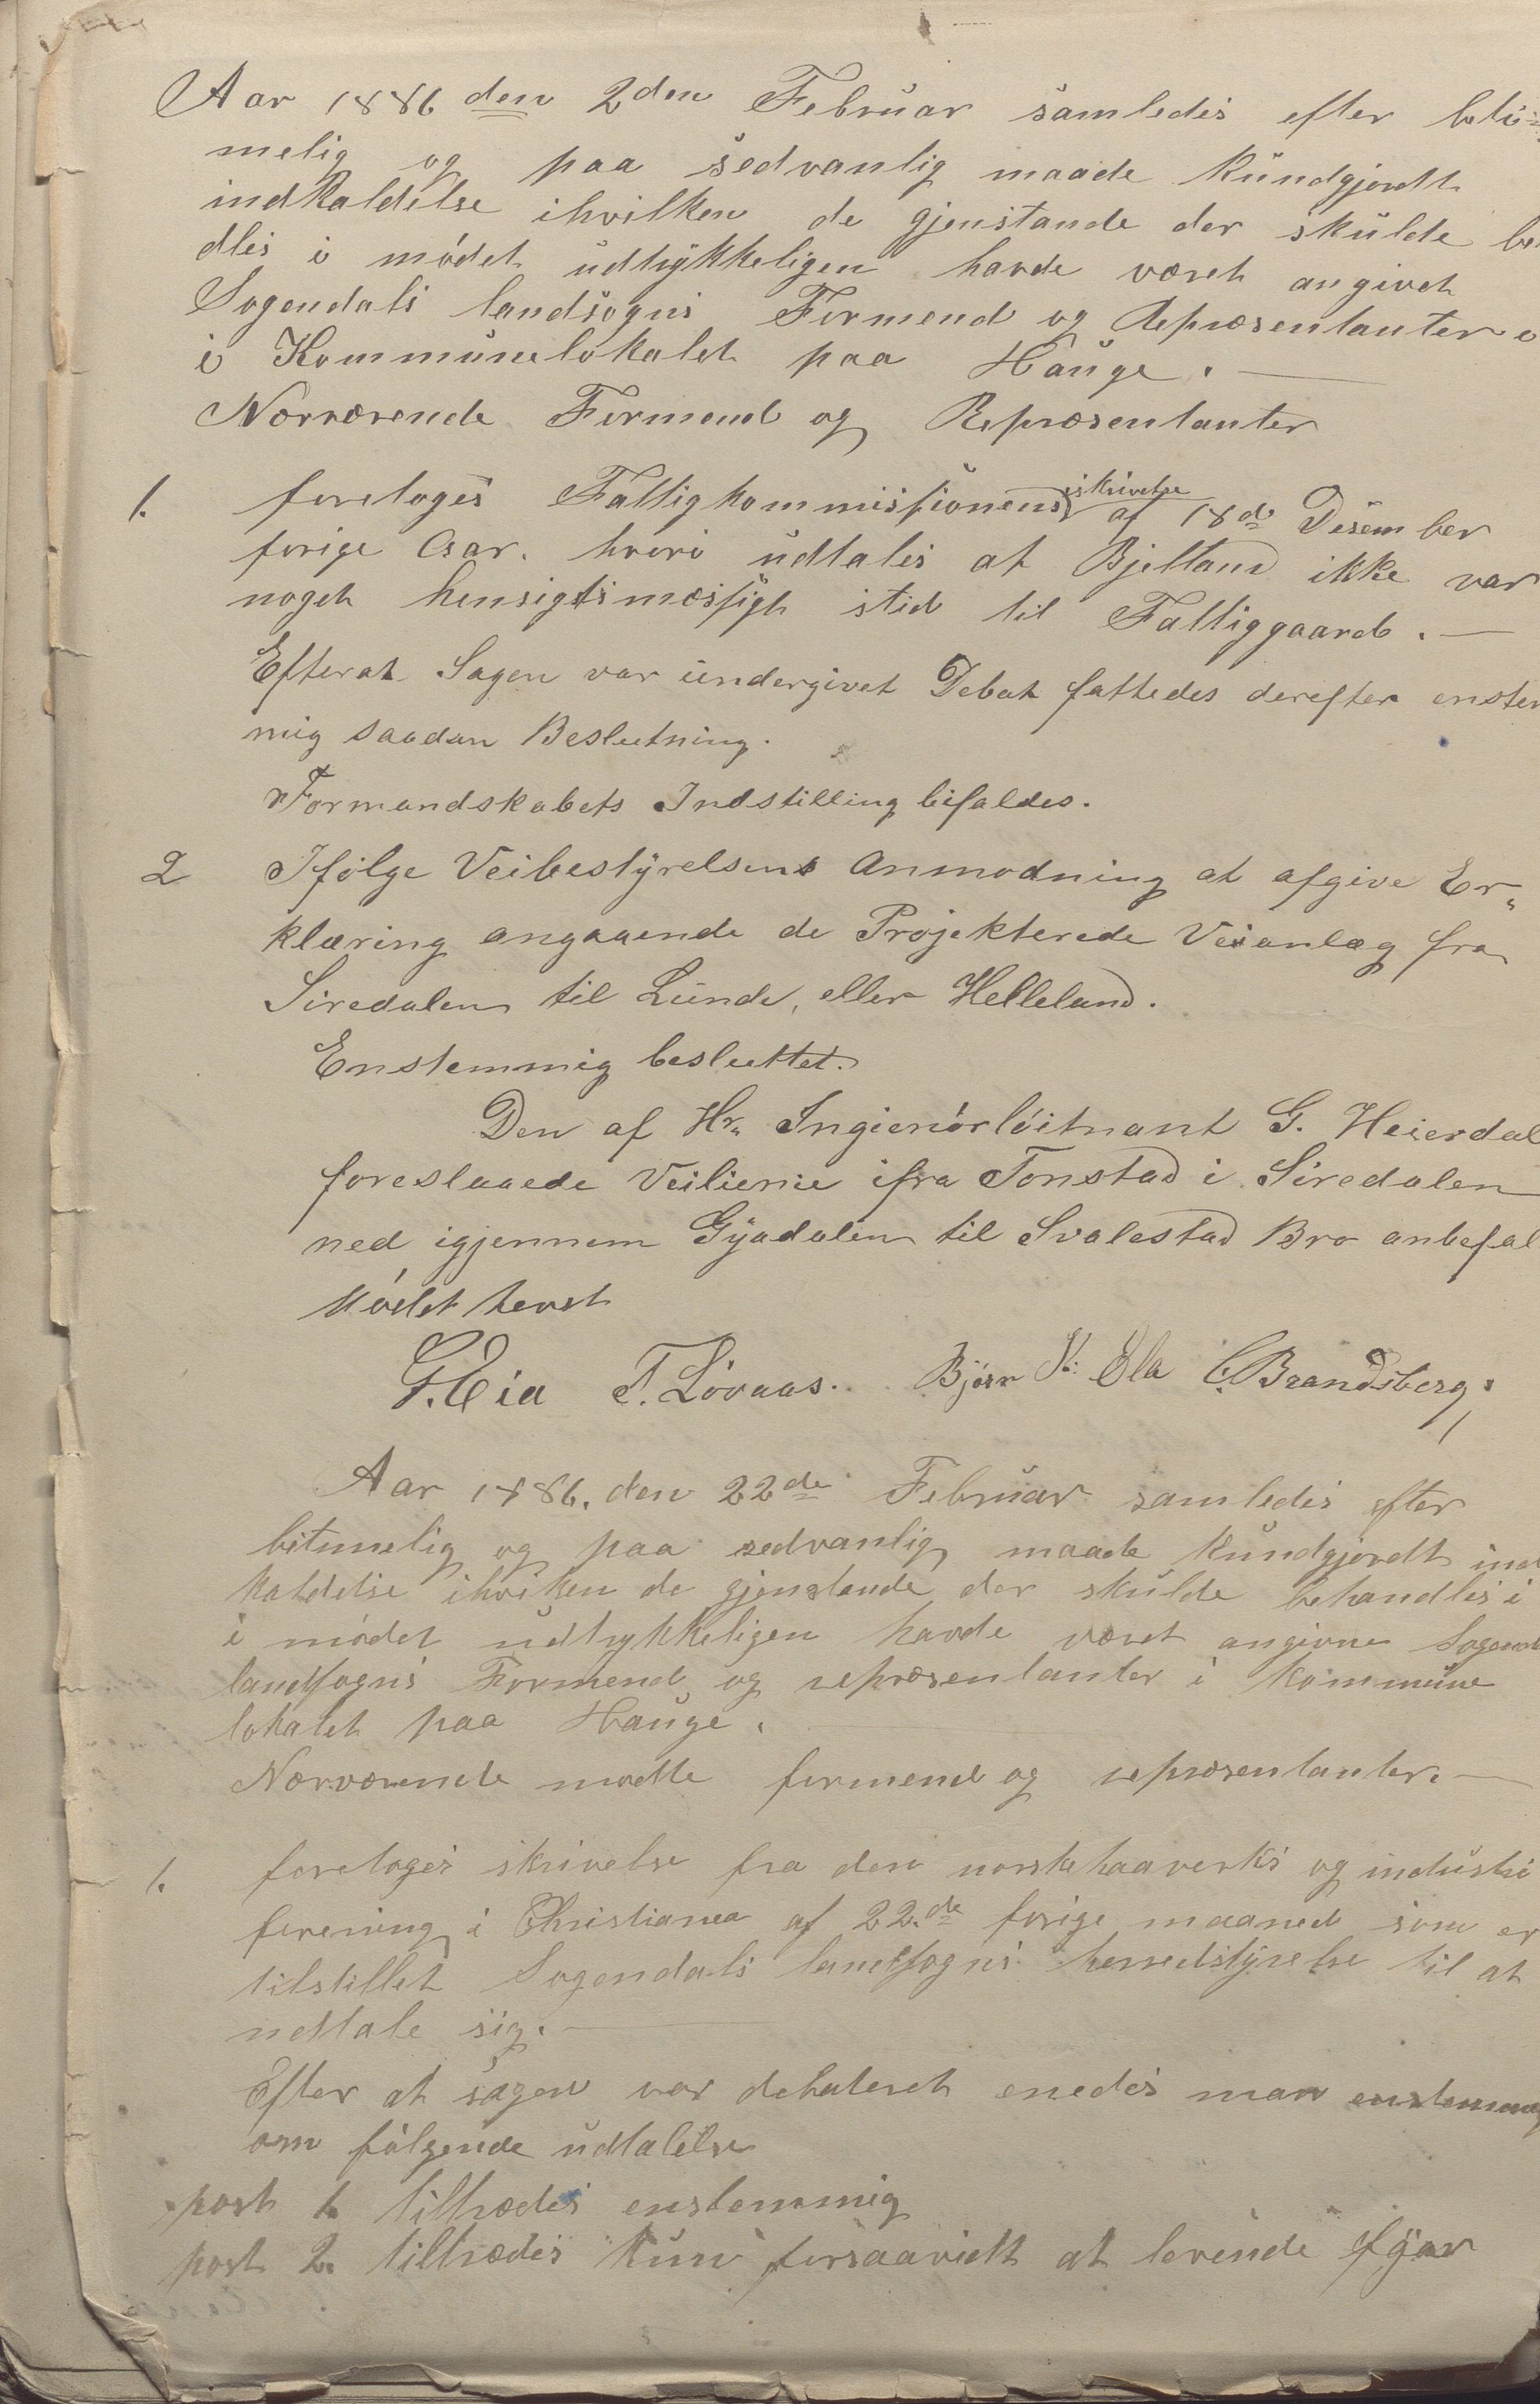 Aar 1886 den 2den Februar samledes efter beti-
melig og paa sedvanlig maade Kundgjordt
indkaldelse ihvilken de gjenstande der skulde be
dles i mödet udtrykkeligen havde været angivet
Sogendals landsogns Formend og Repræsentanter
i Kommunelokalet paa Hauge.
Nærværende Formend og Repræsentanter
1. foretoges Fattigkommissionens skrivelse af 18de Desember
forige Aar. hvori udtales at Bjelland ikke var
noget hensigtsmæssigt sted til Fattiggaard.
Efterat Sagen var undergivet Debat fattedes derefter enstem
mig saadan Beslutning.
Formandskabets Indstilling bifaldes.
2 Ifølge Veibestyrelsens Anmodning at afgive Er„
klæring angaaende de Projekterede Veianlæg fra
Siredalen til Lunde, eller Helleland.
Enstemmig besluttet.
Den af Hr„ Ingieniörlöitnant G. Heierdal
foreslaaede Veilienie ifra Tonstad i Siredalen
ned igjennem Gyadalen til Svalestad Bro anbefal
Mödet hevet
G. Eia T. Lövaas. Björn K. Ela C. Brandsberg.
Aar 1886. den 22de Februar samledes efter
betimelig og paa sedvanlig maade Kundgjordt ind
kaldelse ihvilken de gjenstande der skulde behandles i
i mödet udtrykkeligen havde været angivne Sogend
landsogns Formend og repræsentanter i Kommune
lokalet paa Hauge.
Nærværende mødte formend og repræsentanter.
1. foretoges skrivelse fra den norske haaverks og industri
forening i Christiania af 22.de forige maaned som er
tilstillet Sogendals landsogns herredstyrelse til at
udtale sig.
Efter at sagen var debateret enedes man enstemmig
om fölgende udtalelse
post 1. tiltrædes enstemmig
post 2. tiltrædes kun forsaavidt at levende